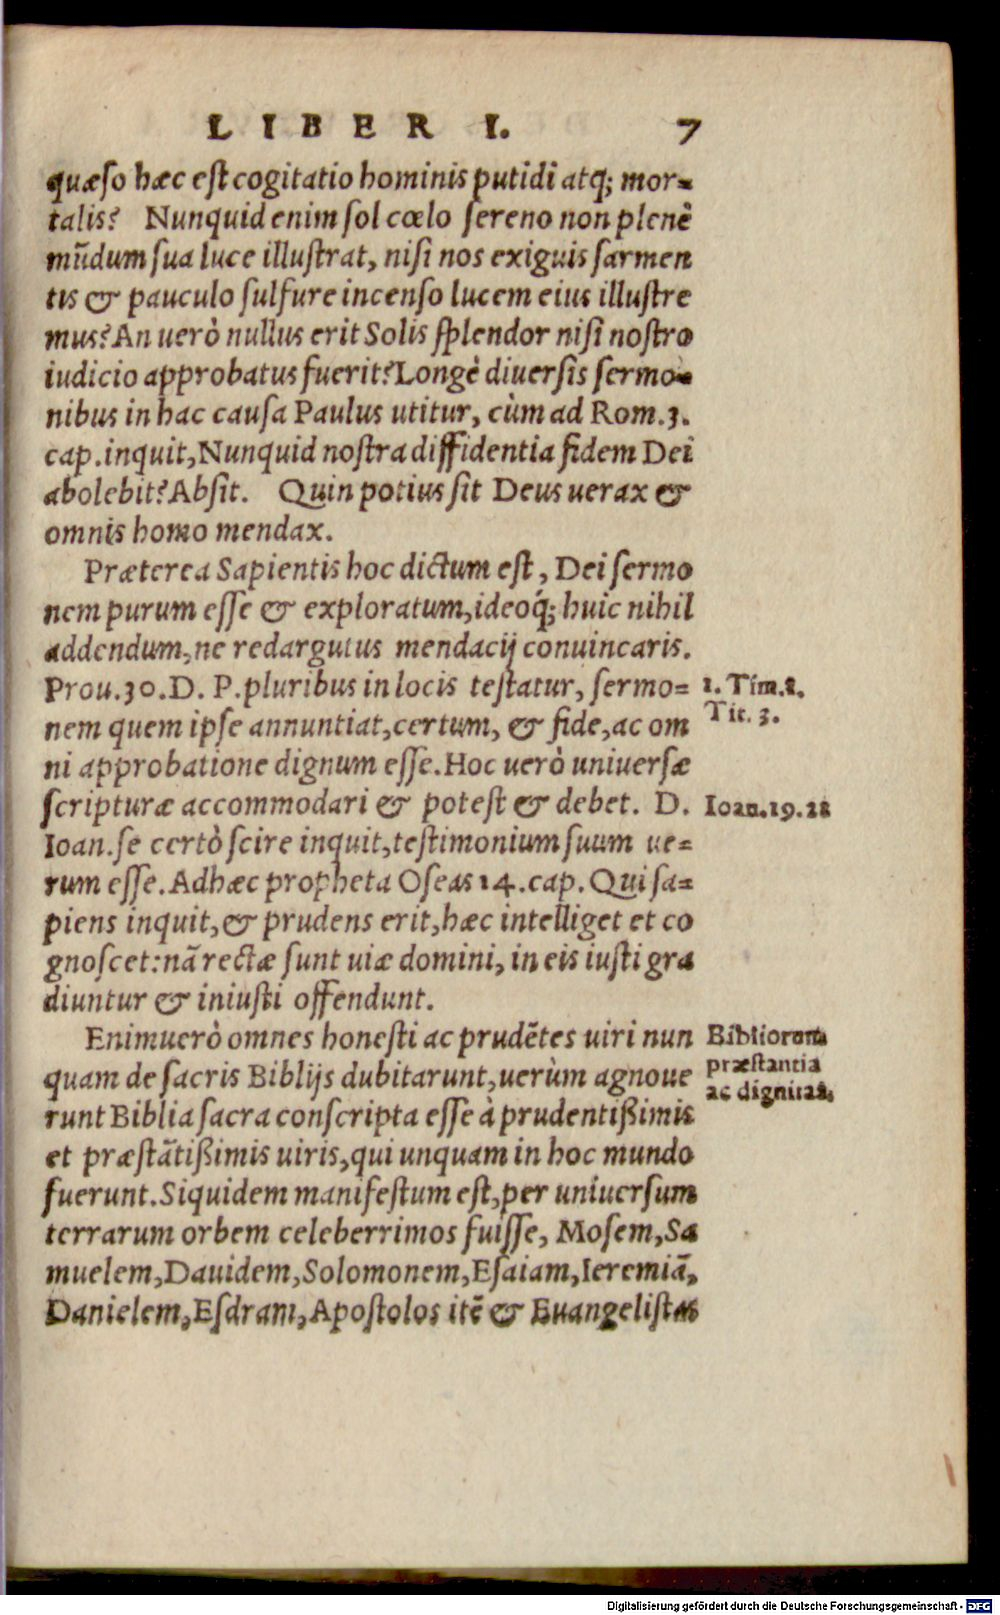 LIBER I. 7
quæſo hæc eſt cogitatio hominis putidi atq; mor-
talis? Nunquid enim ſol cœlo ſereno non plenè
mũdum ſua luce illuſtrat, niſi nos exiguis ſarmen
tis & pauculo ſulfure incenſo lucem eius illuſtre
mus? An uerò nullus erit Solis ſplendor niſi noſtro
iudicio approbatus fuerit? Longè diuerſis ſermo-
nibus in hac cauſa Paulus utitur, cùm ad Rom.3.
cap. inquit, Nunquid noſtra diffidentia fidem Dei
abolebit? Abſit. Quin potius ſit Deus uerax &
omnis homo mendax.
Præterea Sapientis hoc dictum eſt, Dei ſermo
nem purum eſſe & exploratum, ideoq́; huic nihil
addendum, ne redargutus mendacij conuincaris.
Prou.30. D. P. pluribus in locis teſtatur, ſermo=
1. Tim.1.
Tit. 3.
nem quem ipſe annuntiat, certum, & fide, ac om
ni approbatione dignum eſſe. Hoc uerò uniuerſæ
ſcripturæ accommodari & poteſt & debet. D.
Ioan.19.21
Ioan. ſe certò ſcire inquit, teſtimonium ſuum ue=
rum eſſe. Ad hæc propheta Oſeas 14. cap. Qui ſa=
piens inquit, & prudens erit, hæc intelliget et co
gnoſcet: nã rectæ ſunt uiæ domini, in eis iuſti gra
diuntur & iniuſti offendunt.
Enimuerò omnes honeſti ac prudẽtes uiri nun
Bibliorum
præſtantia
ac dignitas.
quam de ſacris Biblijs dubitarunt, uerùm agnoue
runt Biblia ſacra conſcripta eſſe à prudentißimis
et præſtãtißimis uiris, qui unquam in hoc mundo
fuerunt. Siquidem manifeſtum eſt, per uniuerſum
terrarum orbem celeberrimos fuiſſe, Moſem, Sa
muelem, Dauidem, Solomonem, Eſaiam, Ieremiã,
Danielem, Eſdram, Apoſtolos itẽ & Euangeliſtas
Digitalisierung gefördert durch die Deutsche Forschungsgemeinschaft - DFG